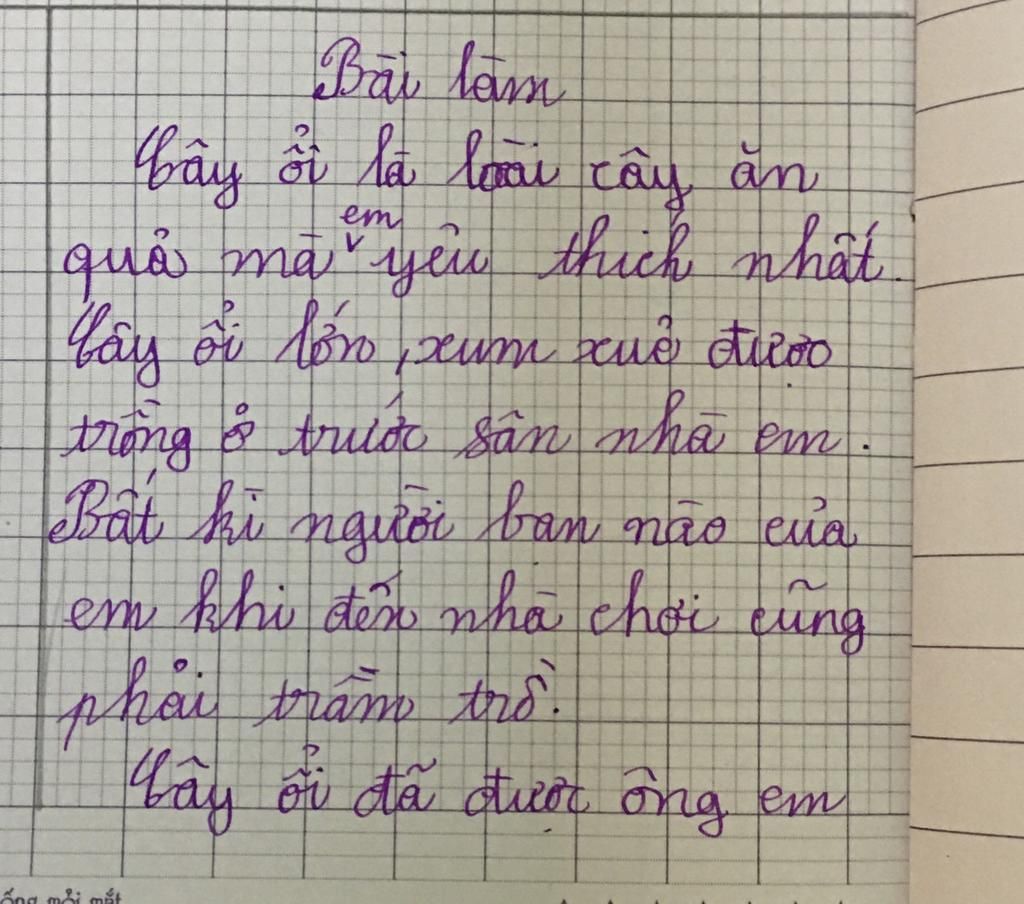 Bài làm
Cây ổi là loài cây ăn
quả mà em yêu thích nhất.
Cây ổi lớn, xum xuê được
trồng ở trước sân nhà em.
Bất kì người bạn nào của
em khi đến nhà chơi cũng
phải trầm trồ.
Cây ổi đã được ông em
ống mỏi mắt